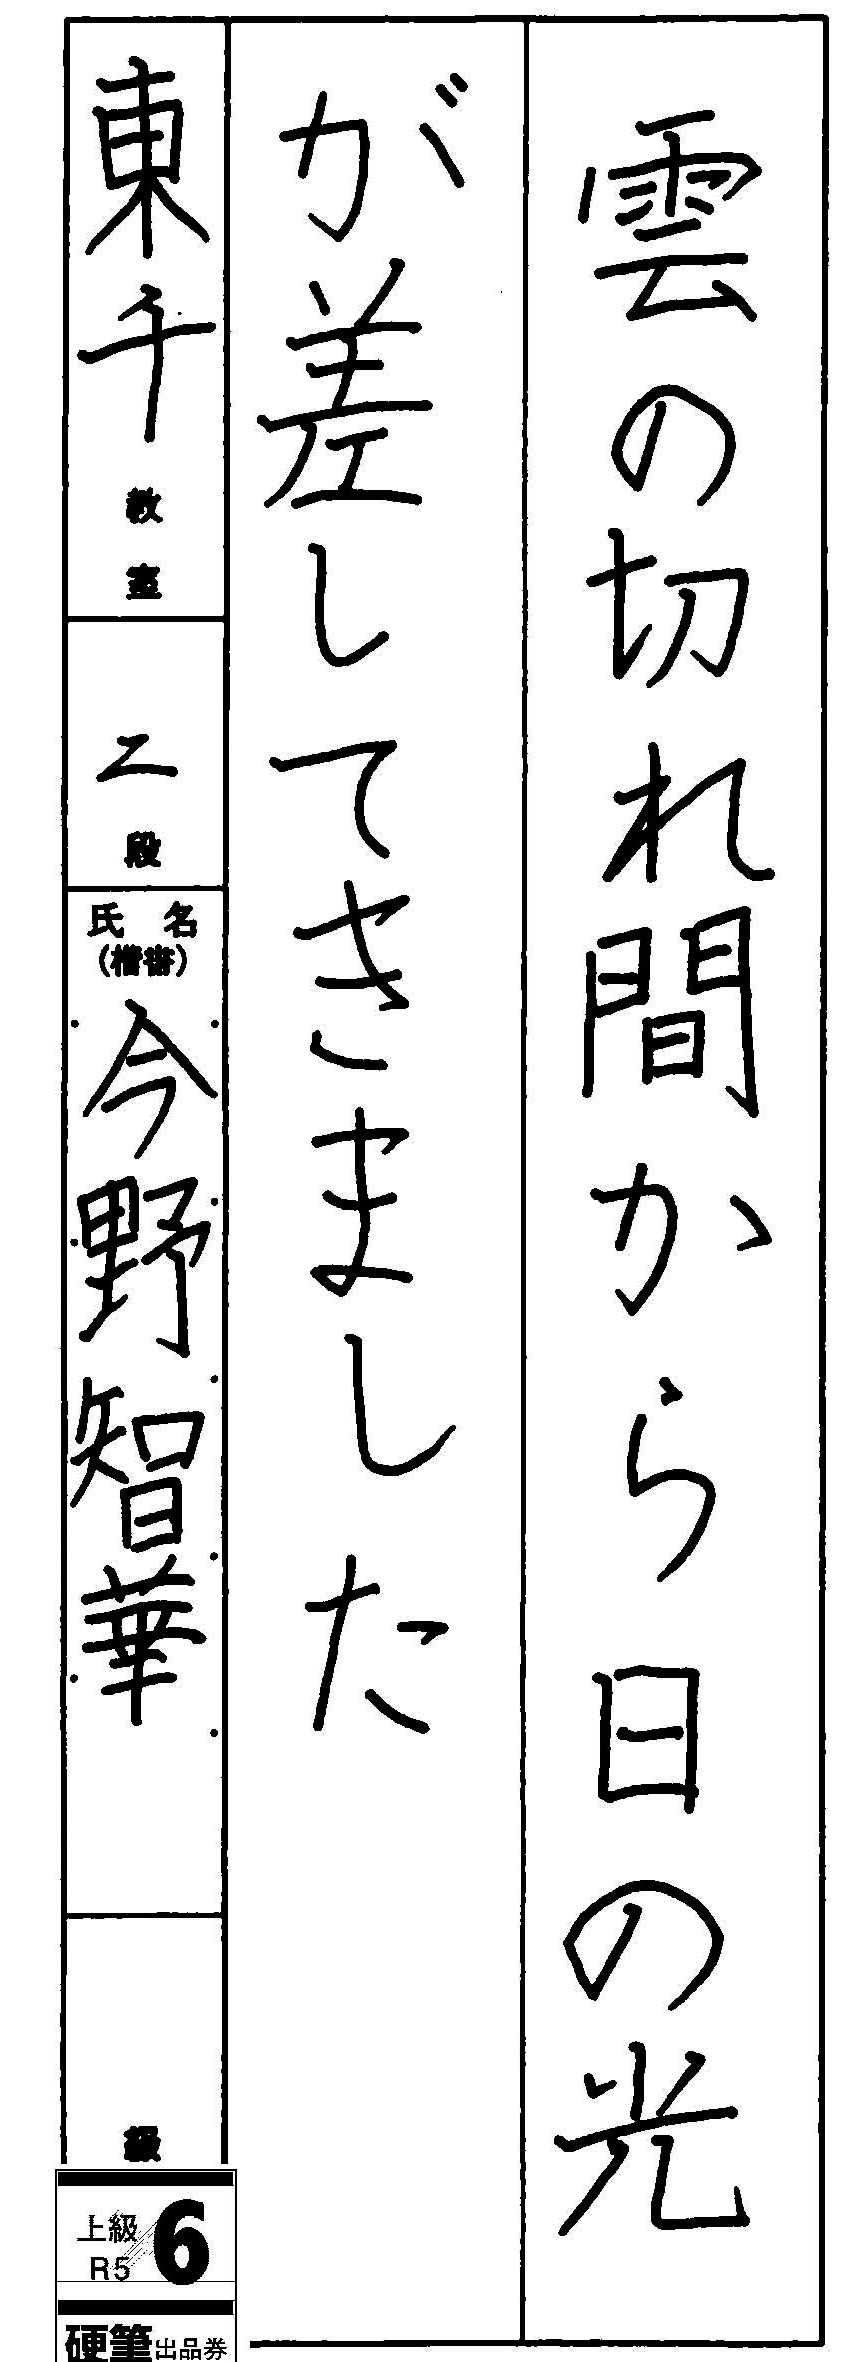 雲の切れ間から日の光
が差してきました
東千教室
二段
氏名
(楷書)
今野智華
級
上級
R5
6
硬筆出品券